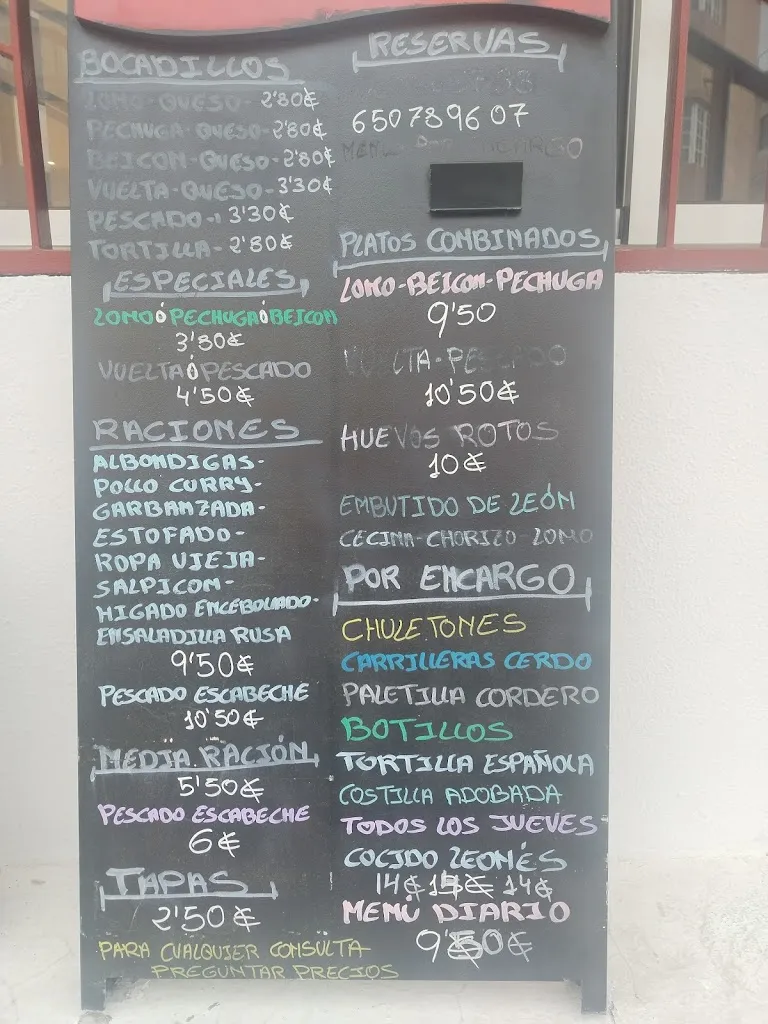 BOCADILLOS
LOMO-QUESO-2'80€
PECHUGA-QUESO-2'80€
BEICON-QUESO-2'80€
VUELTA-QUESO-3'30€
PESCADO-3'30€
TORTILLA-2'80€
ESPECIALES
LOMO Ó PECHUGA Ó BEICON
3'80€
VUELTA Ó PESCADO
4'50€
RACIONES
ALBONDIGAS-
POLLO CURRY-
GARBANZADA-
ESTOFADO-
ROPA VIEJA-
SALPICON-
HIGADO ENCEBOLLADO-
ENSALADILLA RUSA
9'50€
PESCADO ESCABECHE
10'50€
MEDIA RACIÓN
5'50€
PESCADO ESCABECHE
6€
TAPAS
2'50€
PARA CUALQUIER CONSULTA
PREGUNTAR PRECIOS
RESERVAS
650789607
PLATOS COMBINADOS
LOMO-BEICON-PECHUGA
9'50
VUELTA-PESCADO
10'50€
HUEVOS ROTOS
10€
EMBUTIDO DE LEÓN
CECINA-CHORIZO-LOMO
POR ENCARGO
CHULETONES
CARRILLERAS CERDO
PALETILLA CORDERO
BOTILLOS
TORTILLA ESPAÑOLA
COSTILLA ADOBADA
TODOS LOS JUEVES
COCIDO LEONÉS
14€ 15€ 14€
MENÚ DIARIO
9'50€